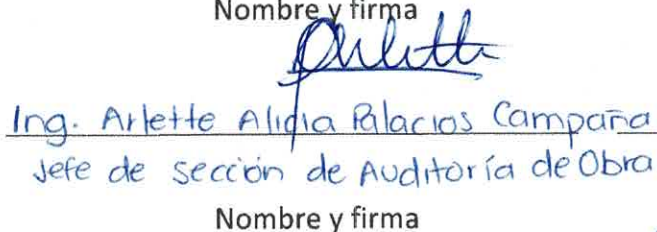 Nombre y firma
Arlette
Ing. Arlette Alidia Palacios Campaña
Jefe de sección de Auditoría de Obra
Nombre y firma